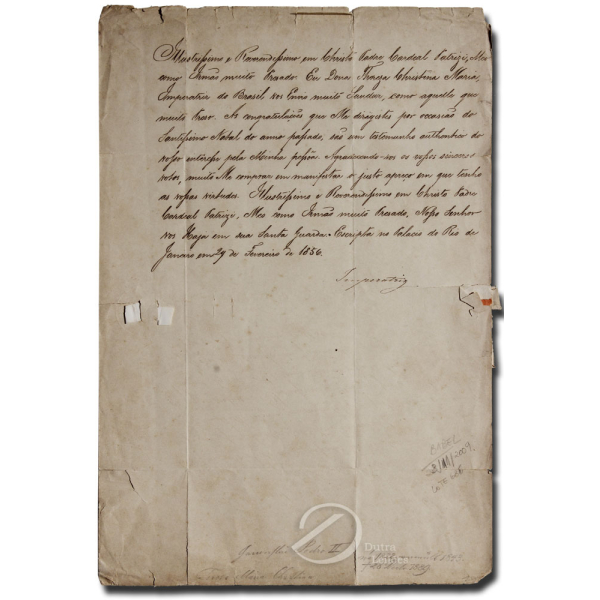 Illustrissimo e Reverendissimo em Christo Padre Cardeal Patrizi, Meo
como Irmão muito Prezado. Eu Dona Thereza Christina Maria,
Imperatriz do Brasil vos Envio muito Saudar, como aquelle que
muito Prezo. As congratulações que Me dirigistes por occasião do
Santissimo Natal do anno passado, são um testemunho authentico do
vosso interesse pela Minha pessoa. Agradecendo-vos os vossos sinceros
votos, muito Me comprazo em manifestar o justo apreço em que tenho
as vossas virtudes. Illustrissimo e Reverendissimo em Christo Padre
Cardeal Patrizi, Meo como Irmão muito Prezado, Nosso Senhor
vos Haja em sua Santa Guarda. Escripta no Palacio do Rio de
Janeiro em 29 de Fevereiro de 1856.
Imperatriz
BABEL
8/11/2009
LOTE
Pedro II
D
Dutra
Leilões